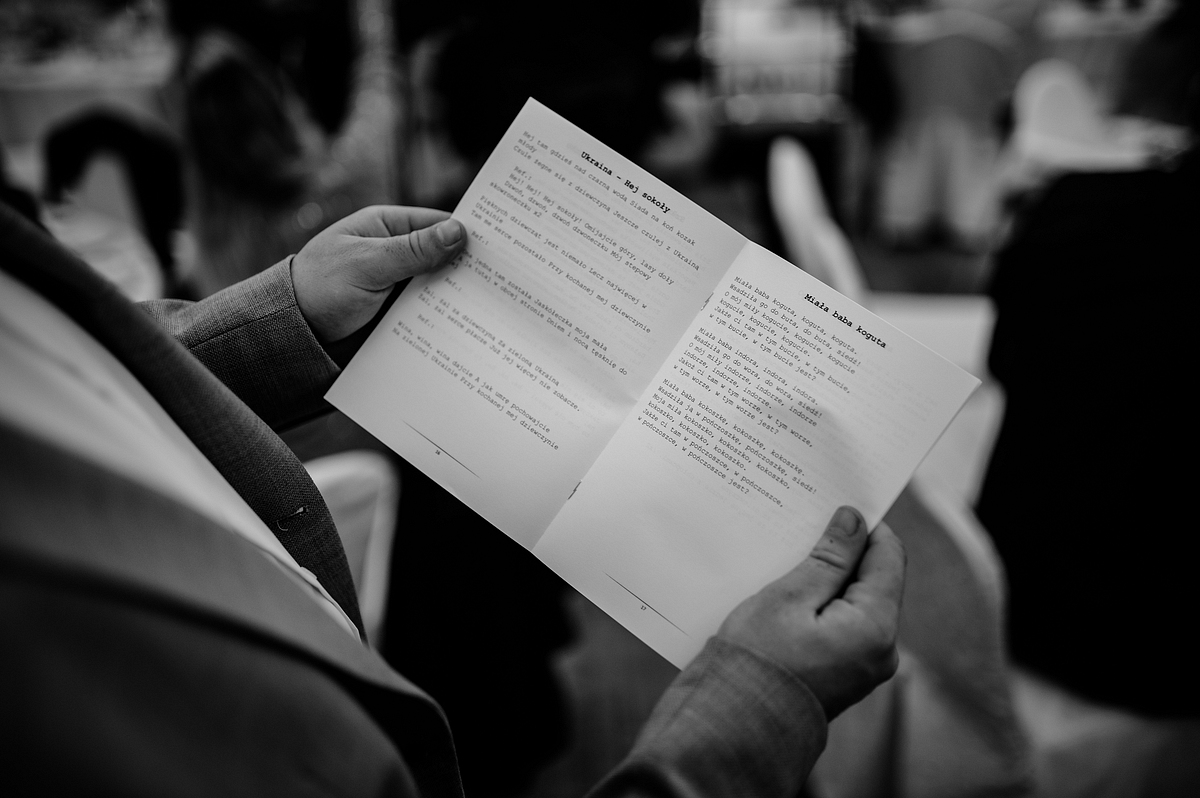 Ukraina - Hej sokoły
Hej tam gdzieś nad czarną wodą Siada na koń kozak
młody
Czule żegna się z dziewczyną Jeszcze czulej z Ukrainą
Ref.:
Hej! Hej! Hej sokoły! Omijajcie góry, lasy doły
Dzwoń, dzwoń, dzwoń dzwoneczku Mój stepowy
skowroneczku x2
Pięknych dziewcząt jest niemało Lecz najwięcej w
Ukrainie
Tam me serce pozostało Przy kochanej mej dziewczynie
Ref.:
jedna tam została Jaskółeczka moja mała
tutaj w obcej stronie Dniem i nocą tęsknię do
Ref.:
Żal, żal za dziewczyną Za zieloną Ukrainą
Żal, żal serce płacze Już jej więcej nie zobaczę.
Ref.:
Wina, wina, wina dajcie A jak umrę pochowajcie
Na zielonej Ukrainie Przy kochanej mej dziewczynie
16
Miała baba koguta
Miała baba koguta, koguta, koguta.
Wsadziła go do buta, do buta, siedź!
O mój miły kogucie, kogucie, kogucie
kogucie, kogucie, kogucie.
Jakże ci tam w tym bucie, w tym bucie,
w tym bucie, w tym bucie jest?
Miała baba indora, indora, indora.
Wsadziła go do wora, do wora, siedź!
O mój miły indorze, indorze, indorze
indorze, indorze, indorze, indorze.
Jakoż ci tam w tym worze, w tym worze,
w tym worze, w tym worze jest?
Miała baba kokoszkę, kokoszkę, kokoszkę.
Wsadziła ją w pończoszkę, pończoszkę, siedź!
Moja miła kokoszko, kokoszko, kokoszko,
kokoszko, kokoszko, kokoszko.
Jakże ci tam w pończoszce, w pończoszce,
w pończoszce, w pończoszce jest?
17